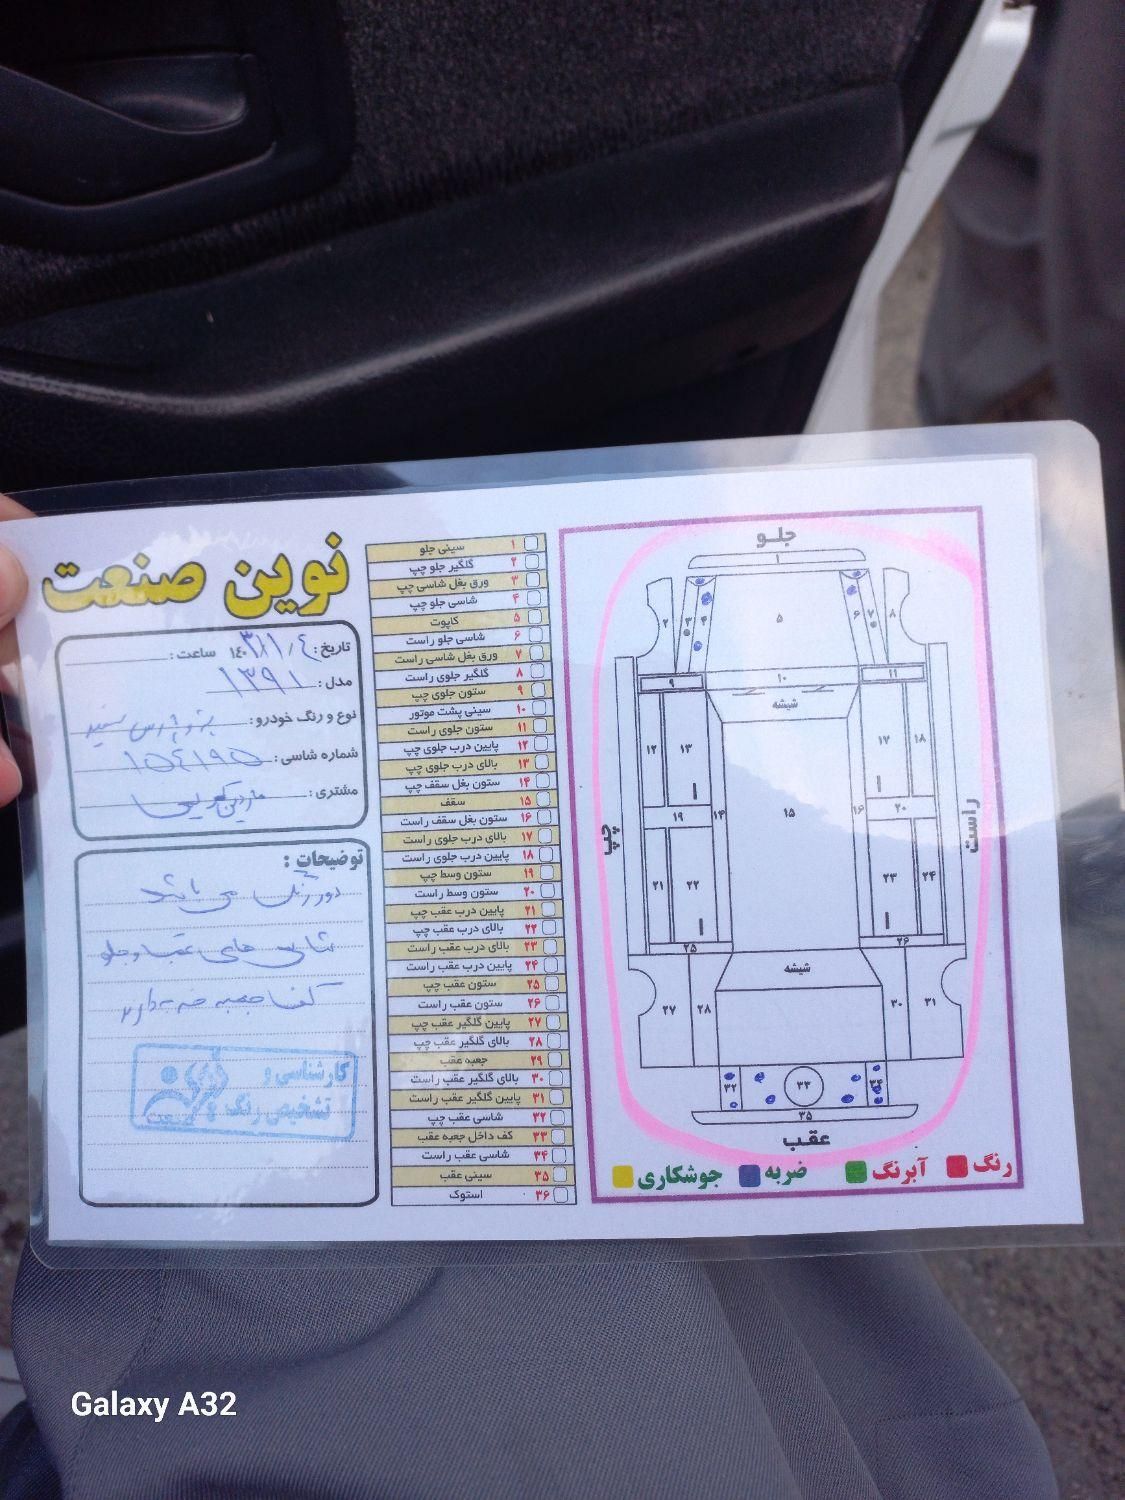 نوین صنعت
تاریخ: ۱۴۰۳/۱۱/۴ ساعت:
مدل: ۱۳۹۱
نوع و رنگ خودرو: پژو پارس سفید
شماره شاسی: ۱۵۴۱۹۵
مشتری:
توضیحات:
دور رنگ می باشد
شاسی های عقب و جلو
کف جعبه ضربه دارد
کارشناسی و
تشخیص رنگ
صنعت
۱ سینی جلو
۲ گلگیر جلو چپ
۳ ورق بغل شاسی چپ
۴ شاسی جلو چپ
۵ کاپوت
۶ شاسی جلو راست
۷ ورق بغل شاسی راست
۸ گلگیر جلوی راست
۹ ستون جلوی چپ
۱۰ سینی پشت موتور
۱۱ ستون جلوی راست
۱۲ پایین درب جلوی چپ
۱۳ بالای درب جلوی چپ
۱۴ ستون بغل سقف چپ
۱۵ سقف
۱۶ ستون بغل سقف راست
۱۷ بالای درب جلوی راست
۱۸ پایین درب جلوی راست
۱۹ ستون وسط چپ
۲۰ ستون وسط راست
۲۱ پایین درب عقب چپ
۲۲ بالای درب عقب چپ
۲۳ بالای درب عقب راست
۲۴ پایین درب عقب راست
۲۵ ستون عقب چپ
۲۶ ستون عقب راست
۲۷ پایین گلگیر عقب چپ
۲۸ بالای گلگیر عقب چپ
۲۹ جعبه عقب
۳۰ بالای گلگیر عقب راست
۳۱ پایین گلگیر عقب راست
۳۲ شاسی عقب چپ
۳۳ کف داخل جعبه عقب
۳۴ شاسی عقب راست
۳۵ سینی عقب
۳۶ استوک
جلو
۱
۲ ۳ ۴ ۵ ۶ ۷ ۸
۹ ۱۰ ۱۱
شیشه
۱۲ ۱۳ ۱۷ ۱۸
۱۹ ۱۴ ۱۵ ۱۶ ۲۰
چپ
راست
۲۱ ۲۲ ۲۳ ۲۴
۲۵ ۲۶
شیشه
۲۷ ۲۸ ۳۰ ۳۱
۳۲ ۳۳ ۳۴
۳۵
عقب
رنگ آبرنگ ضربه جوشکاری
Galaxy A32